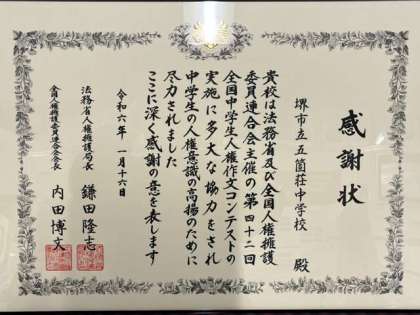 感謝状
堺市立五箇荘中学校 殿
貴校は法務省及び全国人権擁護
委員連合会主催の第四十二回
全国中学生人権作文コンテストの
実施に多大な協力をされ
中学生の人権意識の高揚のために
尽力されました
ここに深く感謝の意を表します
令和六年 一月十六日
法務省人権擁護局長 鎌田隆志
全国人権擁護委員連合会会長 内田博文